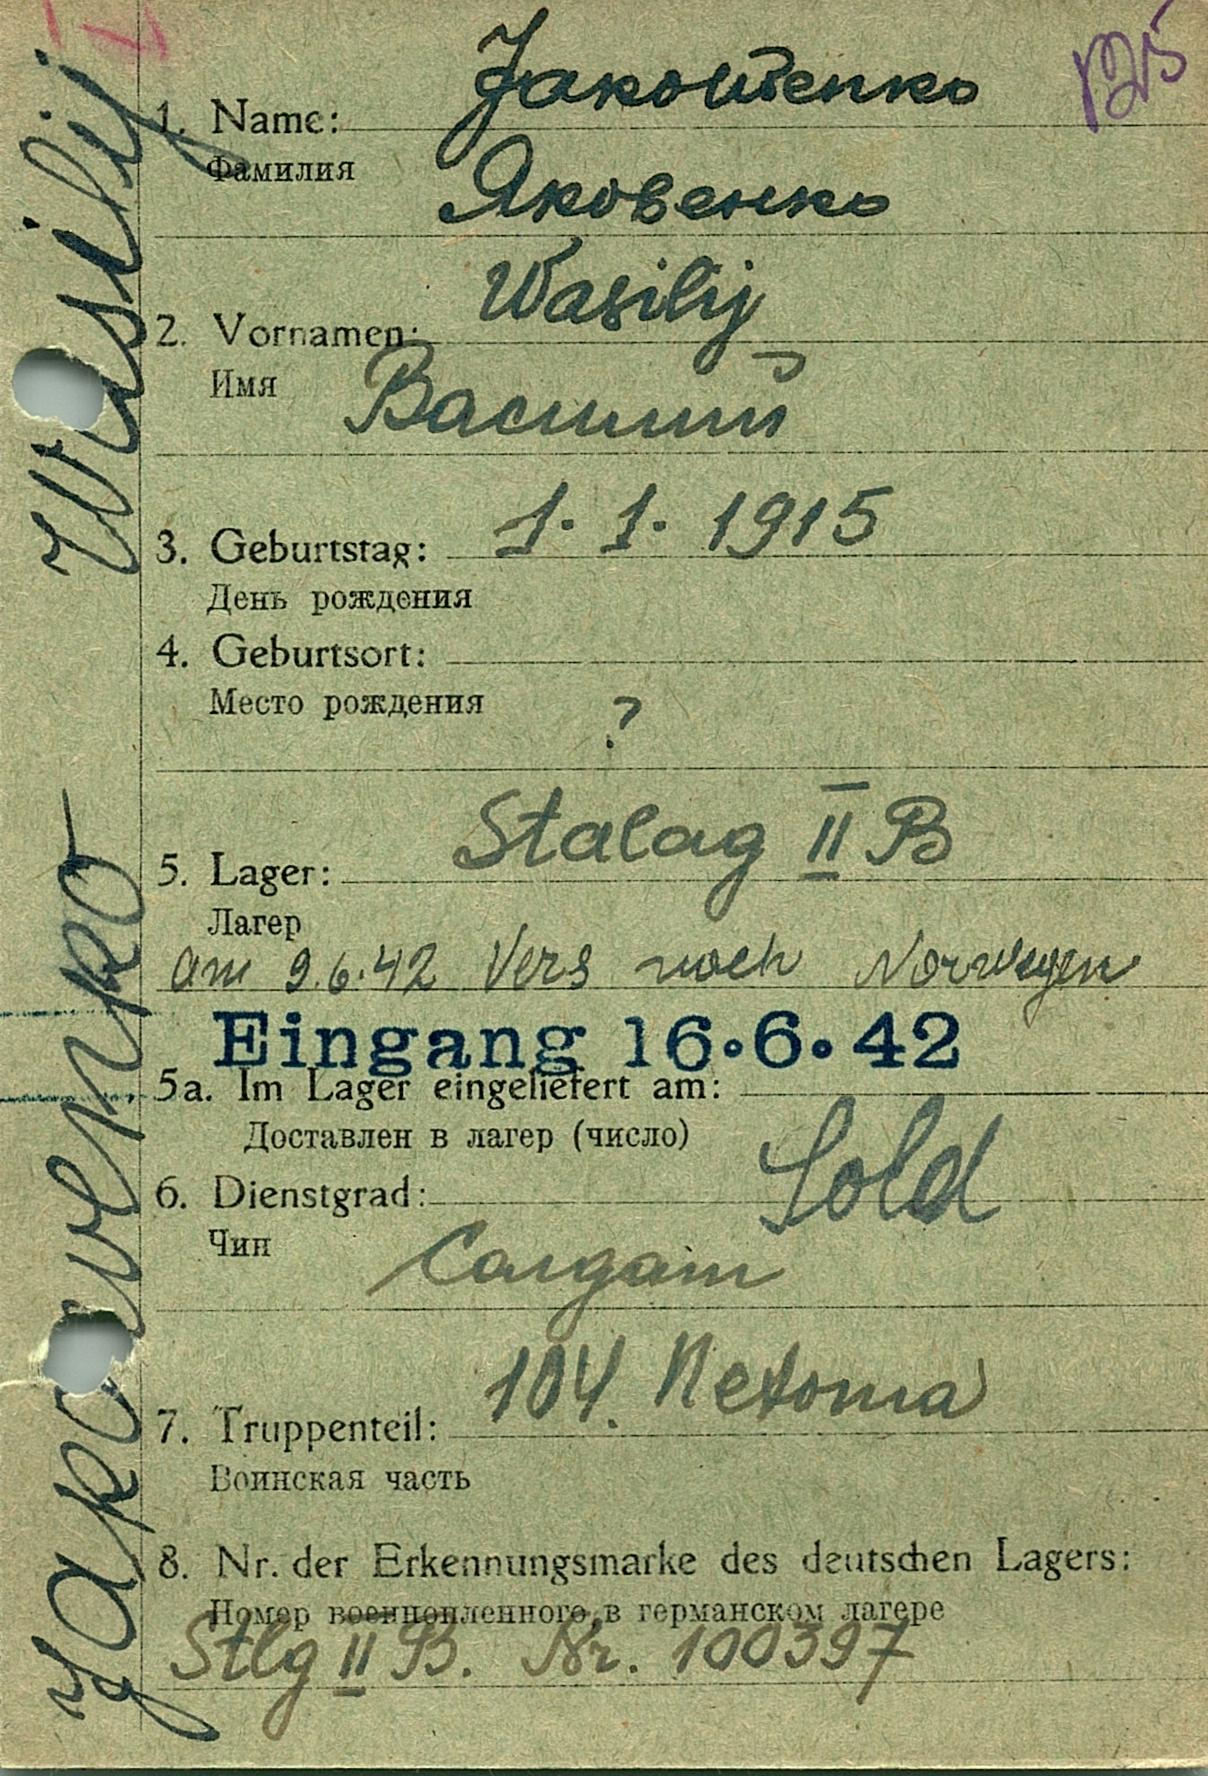 125
1. Name: Jakowenko
Фамилия Яковенко
2. Vornamen: Wasilij
Имя Василий
3. Geburtstag: 1. 1. 1915
День рождения
4. Geburtsort:
Место рождения ?
5. Lager: Stalag II B
Лагер
am 9.6.42 Vers nach Norwegen
Eingang 16.6.42
5a. Im Lager eingeliefert am:
Доставлен в лагер (число)
6. Dienstgrad: Sold
Чин Солдат
7. Truppenteil: 104.
Воинская часть
8. Nr. der Erkennungsmarke des deutschen Lagers:
Номер военнопленного в германском лагере
Stlg II B. Nr. 100397
Jakowenko Wasilij